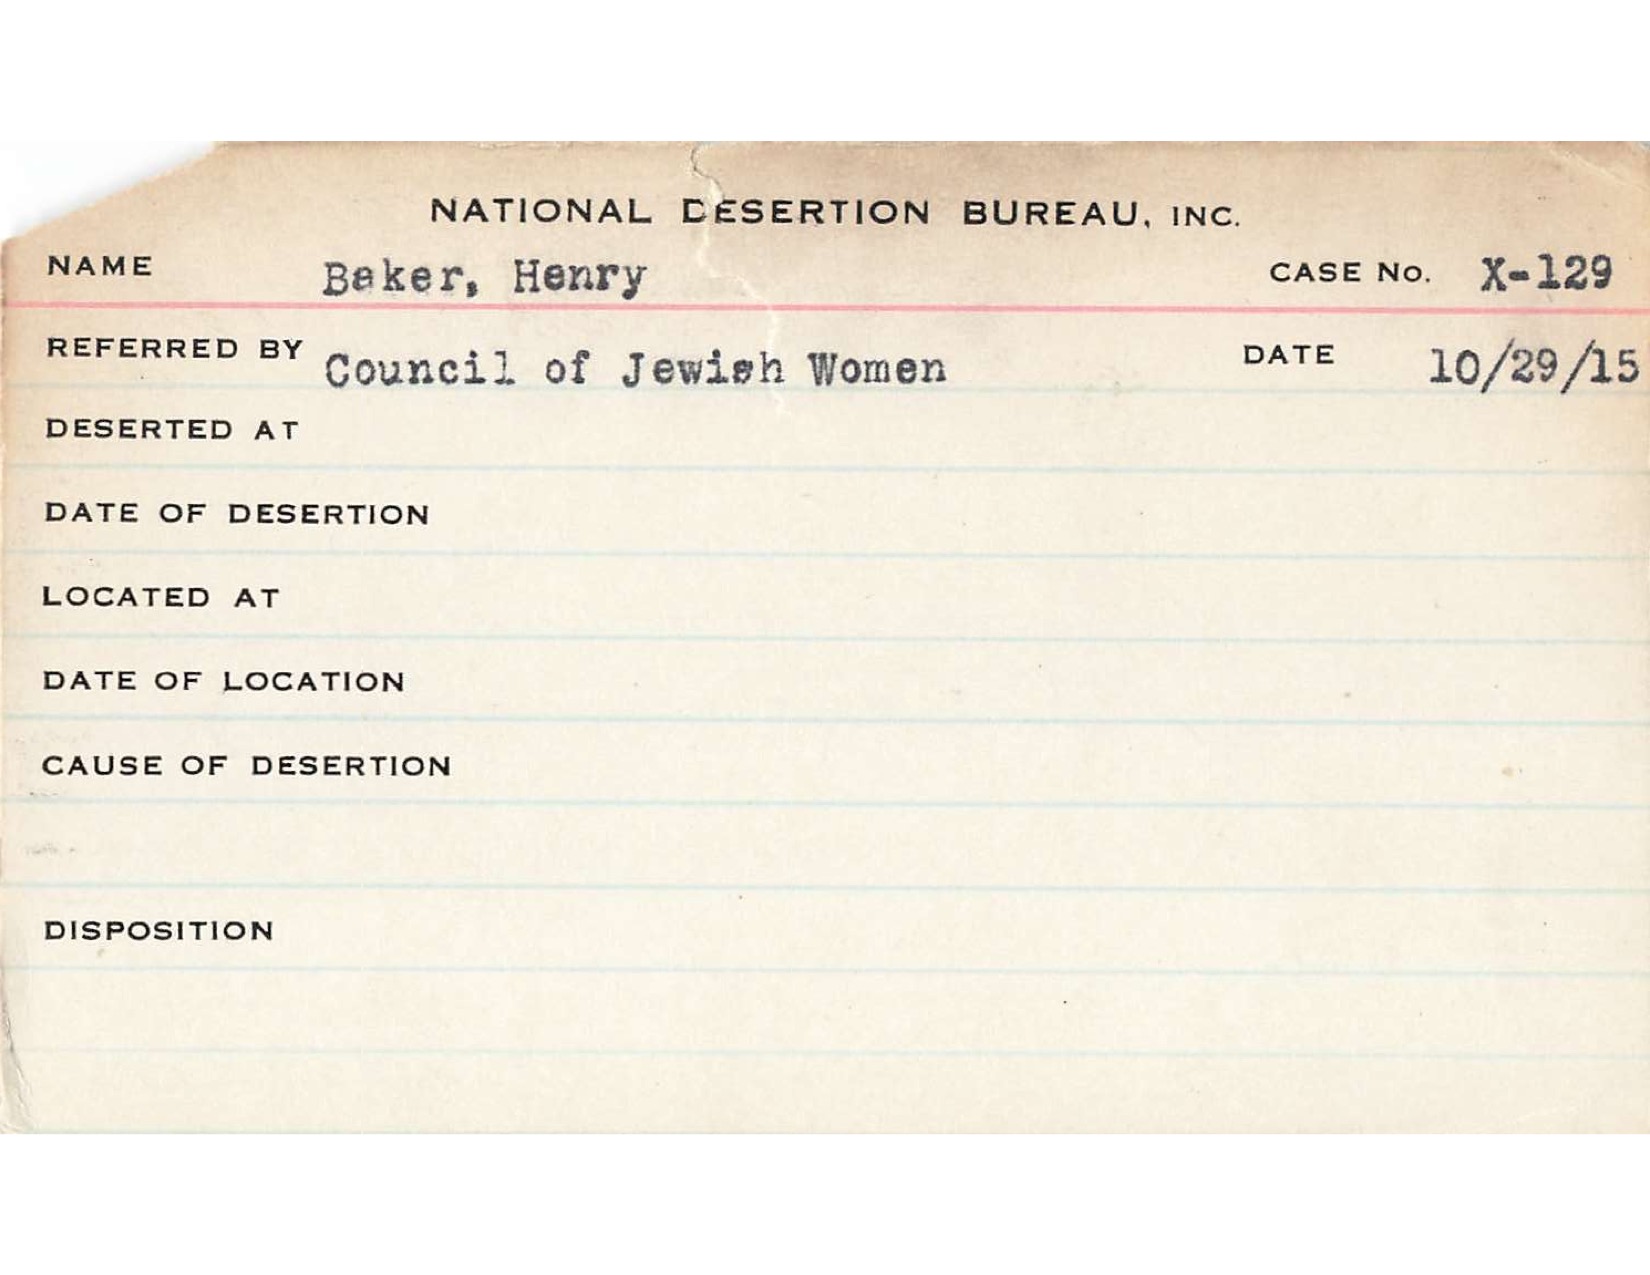 NATIONAL DESERTION BUREAU, INC.
NAME Baker, Henry CASE No. X-129
REFERRED BY Council of Jewish Women DATE 10/29/15
DESERTED AT
DATE OF DESERTION
LOCATED AT
DATE OF LOCATION
CAUSE OF DESERTION
DISPOSITION